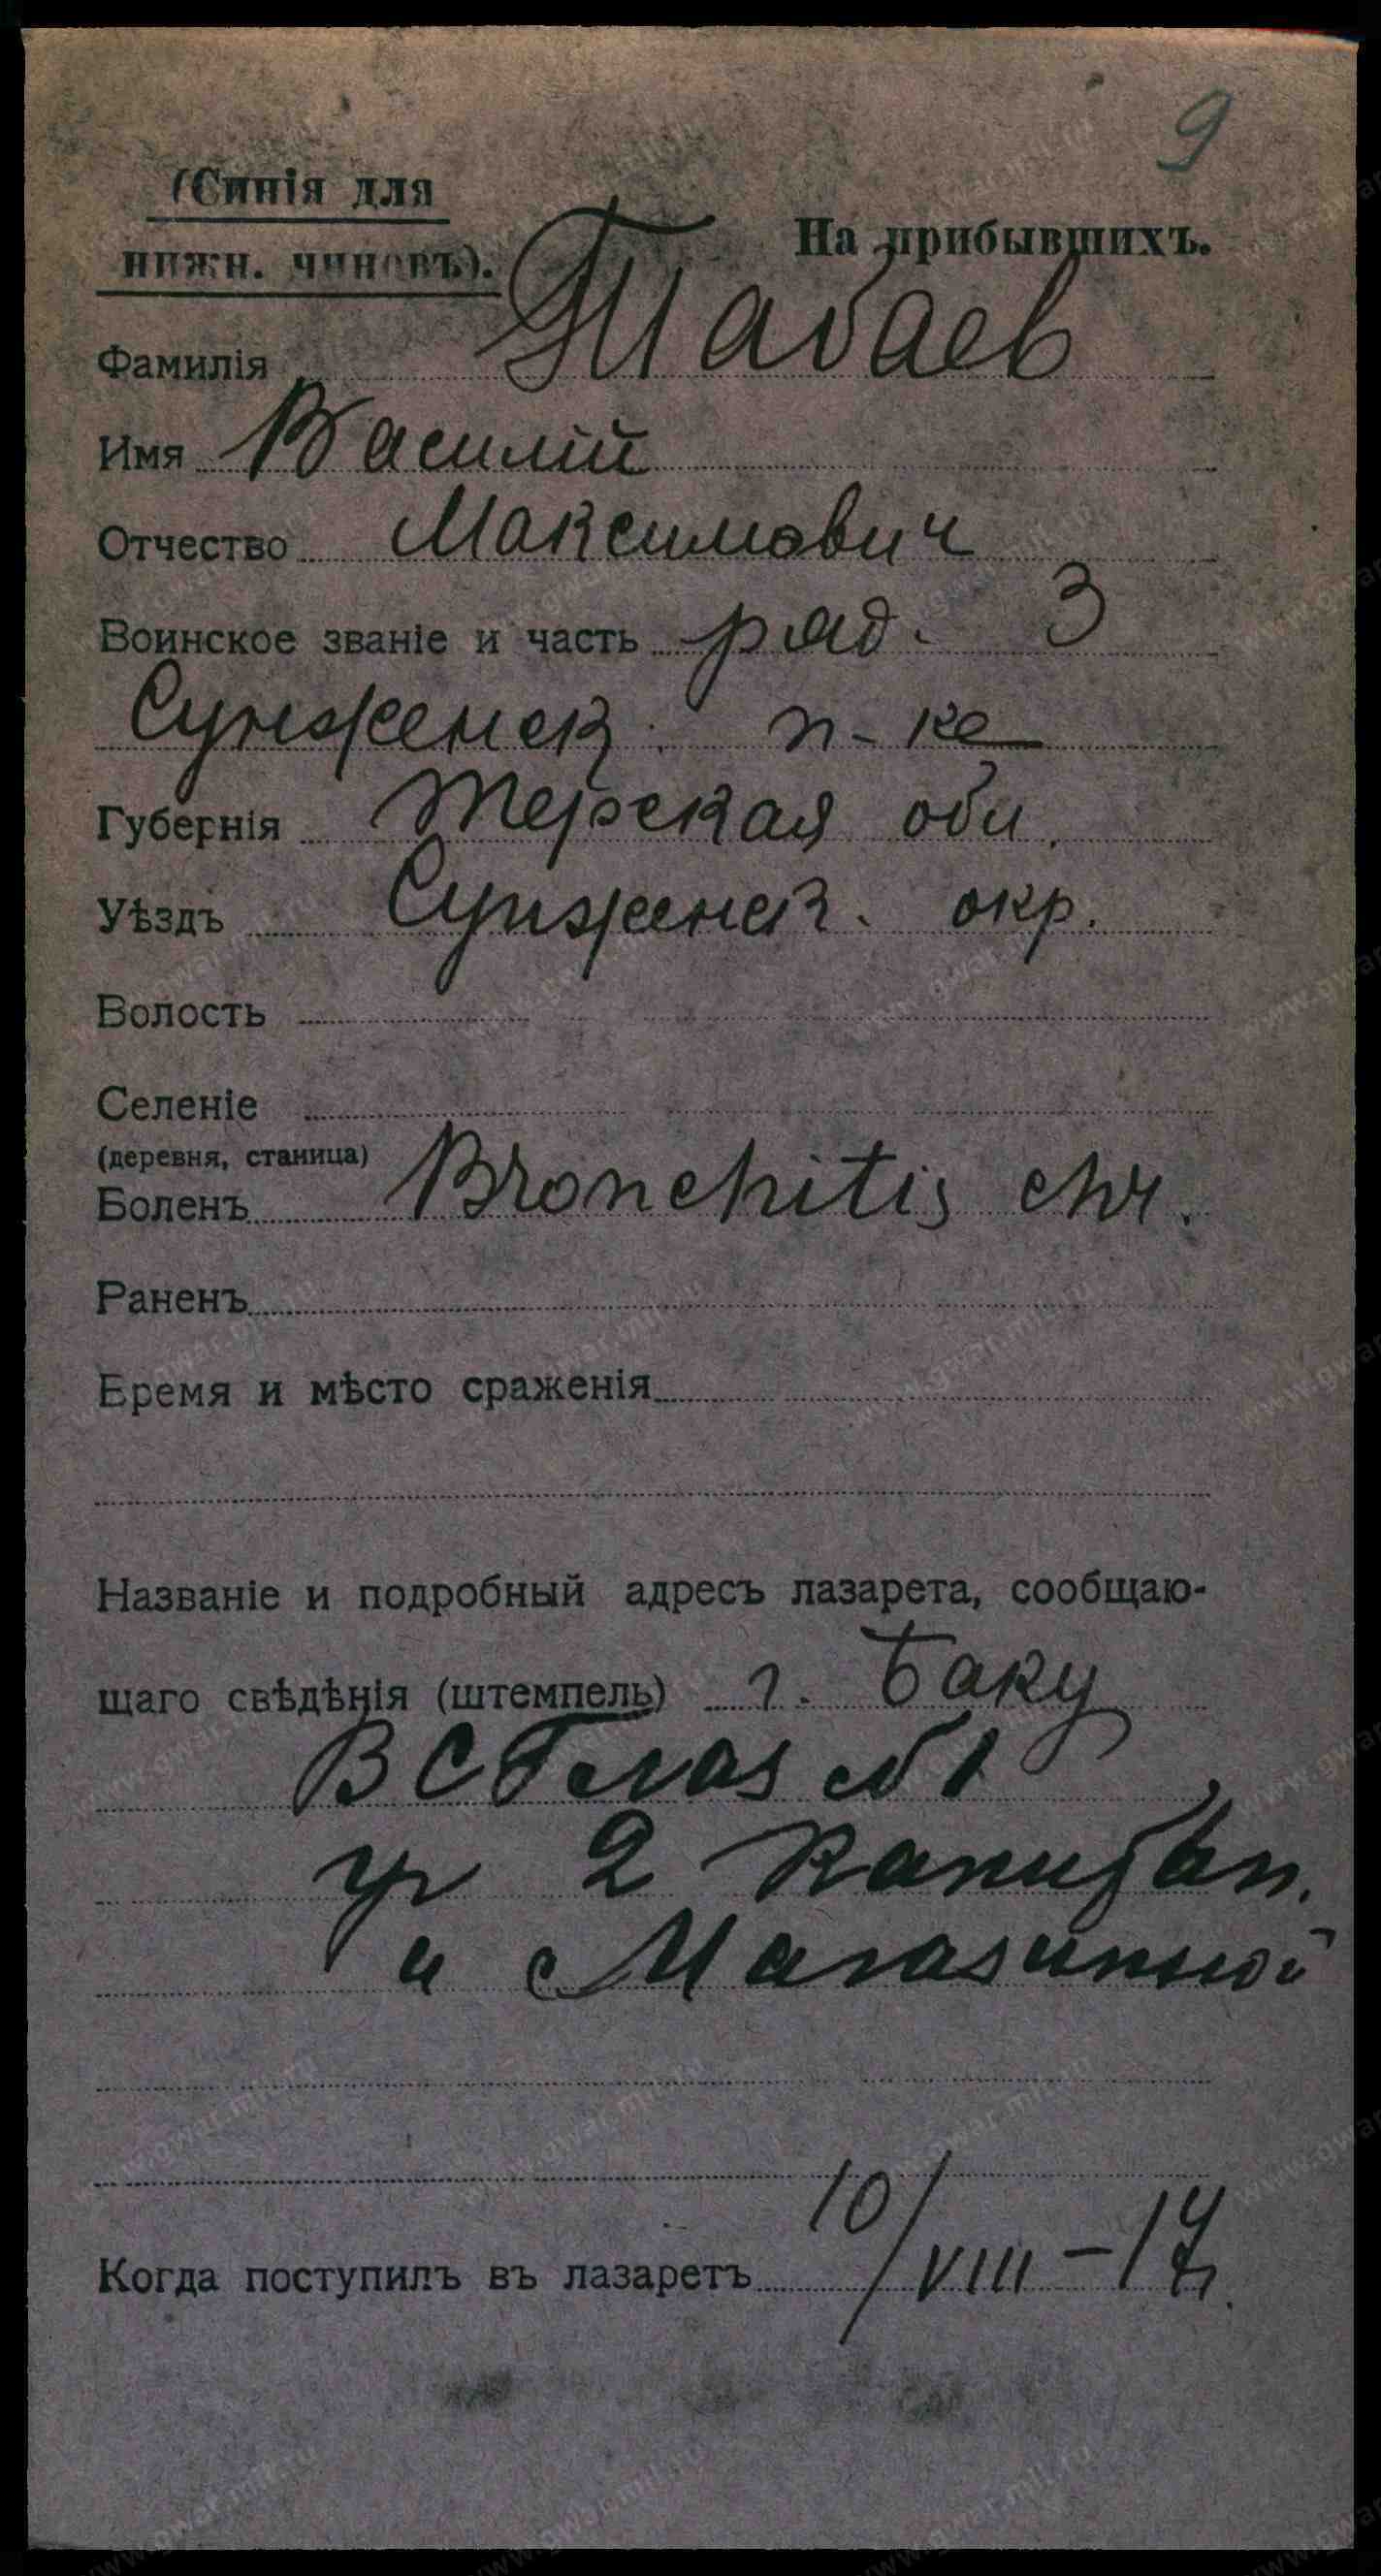 9
(Синія для
нижн. чиновъ).
На прибывшихъ.
Фамилія Табаев
Имя Василій
Отчество Максимович
Воинское званіе и часть ряд. 3
Сунженск. п-ка
Губернія Терская обл.
Уѣздъ Сунженск. окр.
Волость
Селеніе
(деревня, станица)
Боленъ Bronchitis chr.
Раненъ
Время и мѣсто сраженія
Названіе и подробный адресъ лазарета, сообщаю-
щаго свѣдѣнія (штемпель) г. Баку
ВСГ лаз №1
2
и с Магазинной
Когда поступилъ въ лазаретъ 10/VIII-17